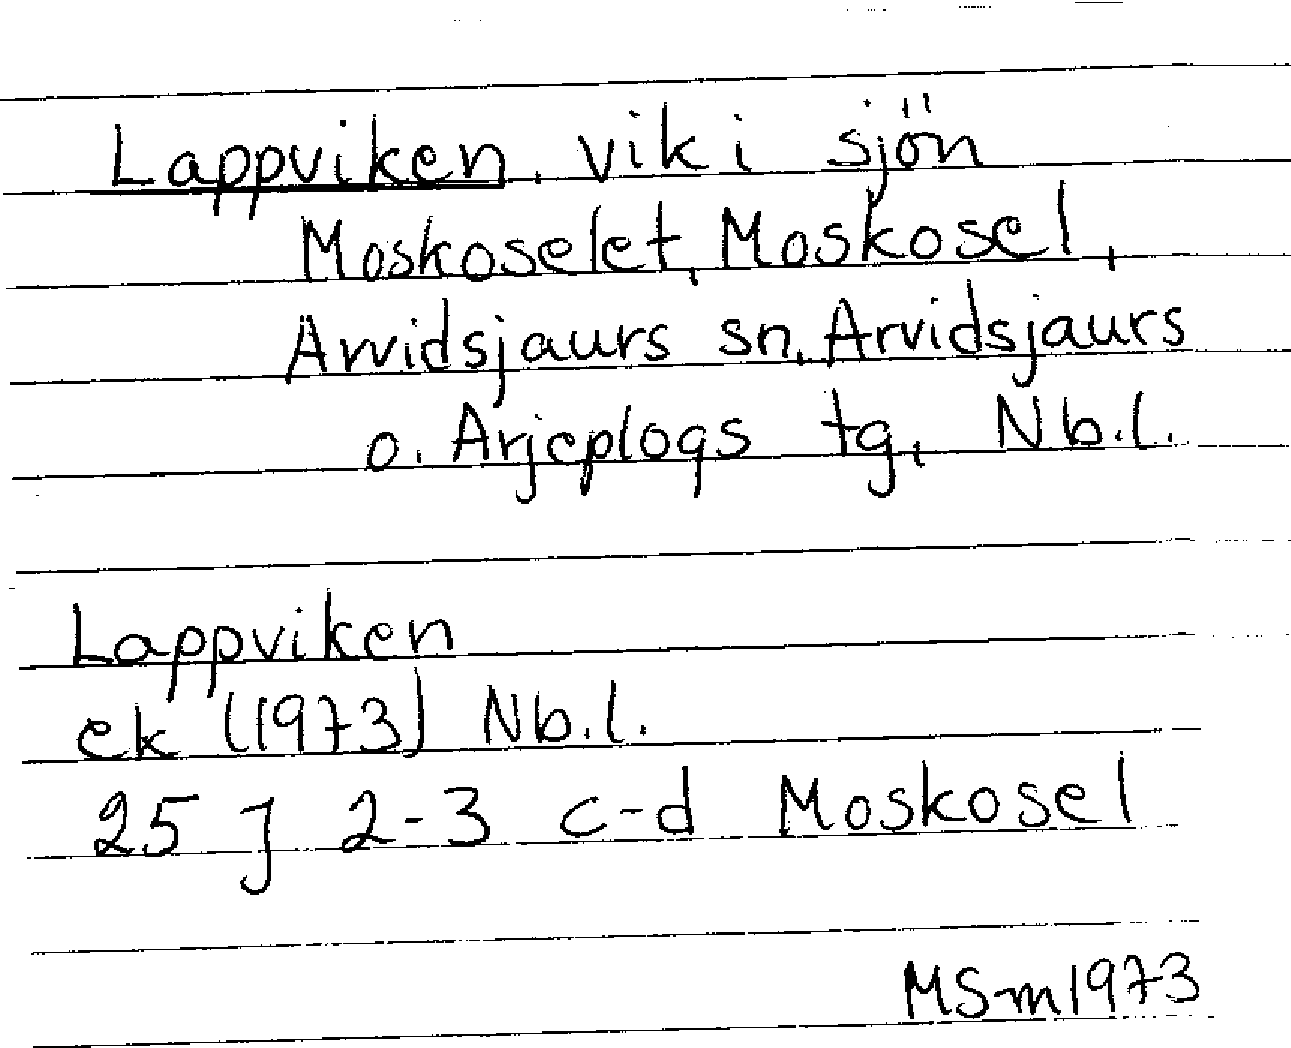 Lappviken, vik i sjön
Moskoselet, Moskosel,
Arvidsjaurs sn, Arvidsjaurs
o. Arjeplogs tg, Nb.l.
Lappviken
ek (1973) Nb.l.
25 J 2-3 c-d Moskosel
MSm 1973